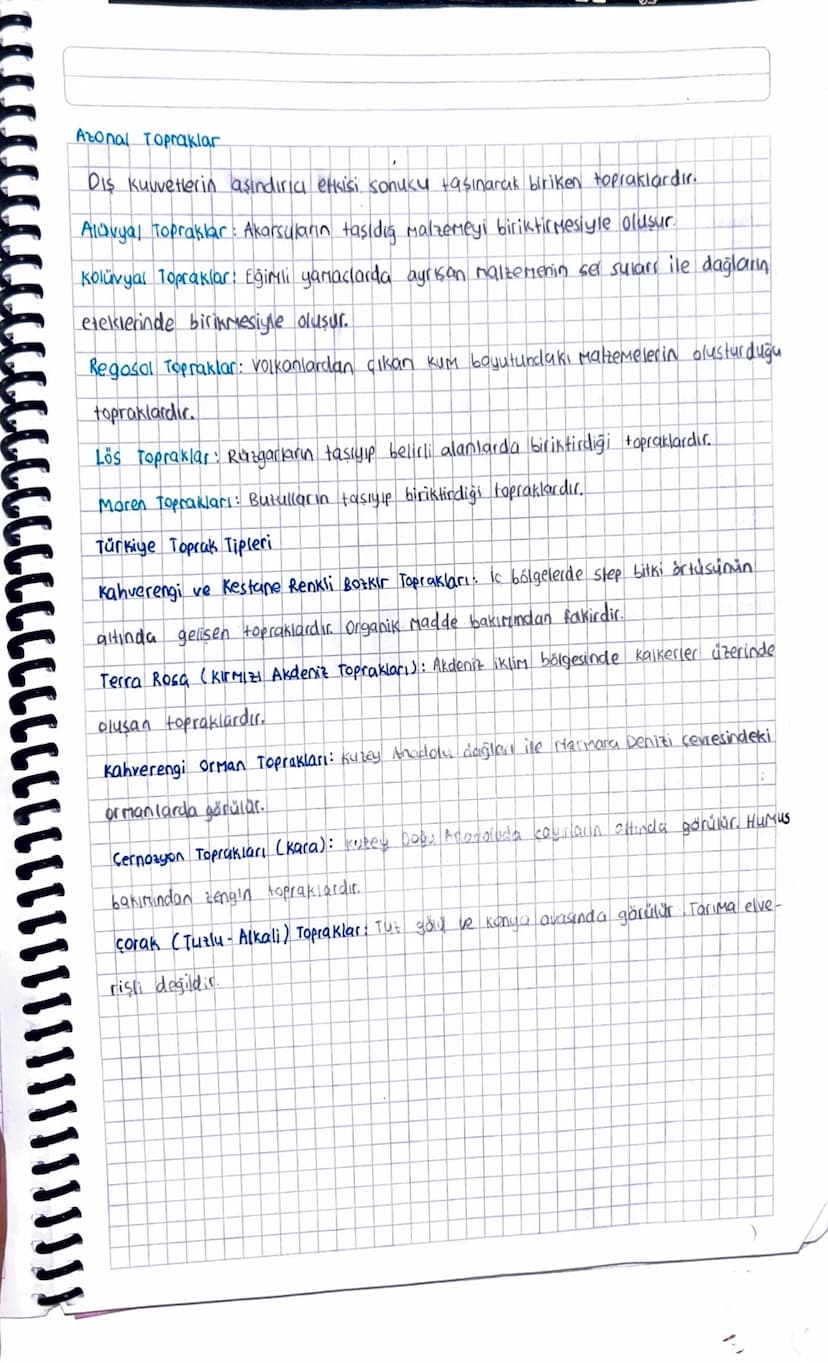 Azonal Topraklar
Dış kuvvetlerin aşındırıcı etkisi sonucu taşınarak biriken topraklardır.
Alüvyal Topraklar: Akarsuların taşıdığ malzemeyi biriktirmesiyle oluşur.
Kolüvyal Topraklar: Eğimli yamaçlarda ayrışan malzemenin sel suları ile dağların
eteklerinde birikmesiyle oluşur.
Regosol Topraklar: Volkanlardan çıkan kum boyutundaki malzemelerin oluşturduğu
topraklardır.
Lös Topraklar: Rüzgarların taşıyıp belirli alanlarda biriktirdiği topraklardır.
Moren Toprakları: Buzulların taşıyıp biriktirdiği topraklardır.
Türkiye Toprak Tipleri
Kahverengi ve Kestane Renkli Bozkır Toprakları: İç bölgelerde step bitki örtüsünün
altında gelişen topraklardır. Organik madde bakımından fakirdir.
Terra Rosa (Kırmızı Akdeniz Toprakları): Akdeniz iklim bölgesinde kalkerler üzerinde
oluşan topraklardır.
Kahverengi Orman Toprakları: Kuzey Anadolu dağları ile Marmara Denizi çevresindeki
ormanlarda görülür.
Çernozyon Toprakları (Kara): Kuzey Doğu Anadoluda çayırların altında görülür. Humus
bakımından zengin topraklardır.
Çorak (Tuzlu-Alkali) Topraklar: Tuz gölü ve Konya ovasında görülür. Tarıma elve-
rişli değildir.